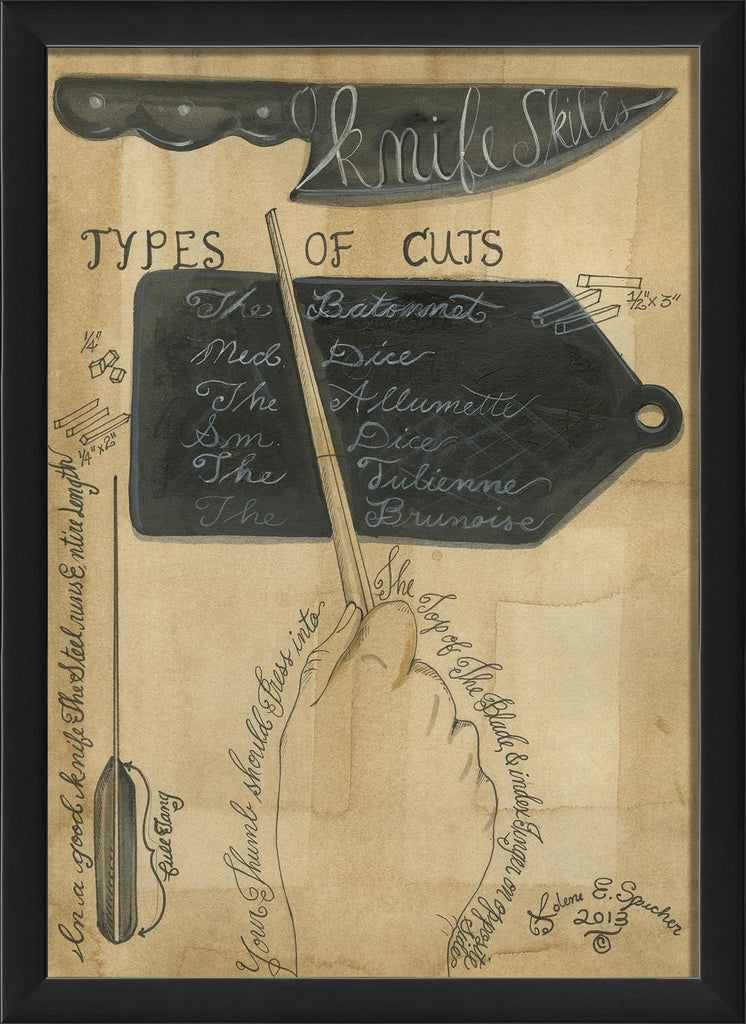 knife Skills
TYPES OF CUTS
The Batonnet
Med. Dice
The Allumette
Sm. Dice
The Julienne
The Brunoise
1/2" x 3"
1/4"
1/4" x 2"
In a good knife The Steel runs Entire Length
Full Tang
Your Thumb should Press into
The Top of The Blade, & index finger on opposite
Side
Kolene E. Spicher
2013
©